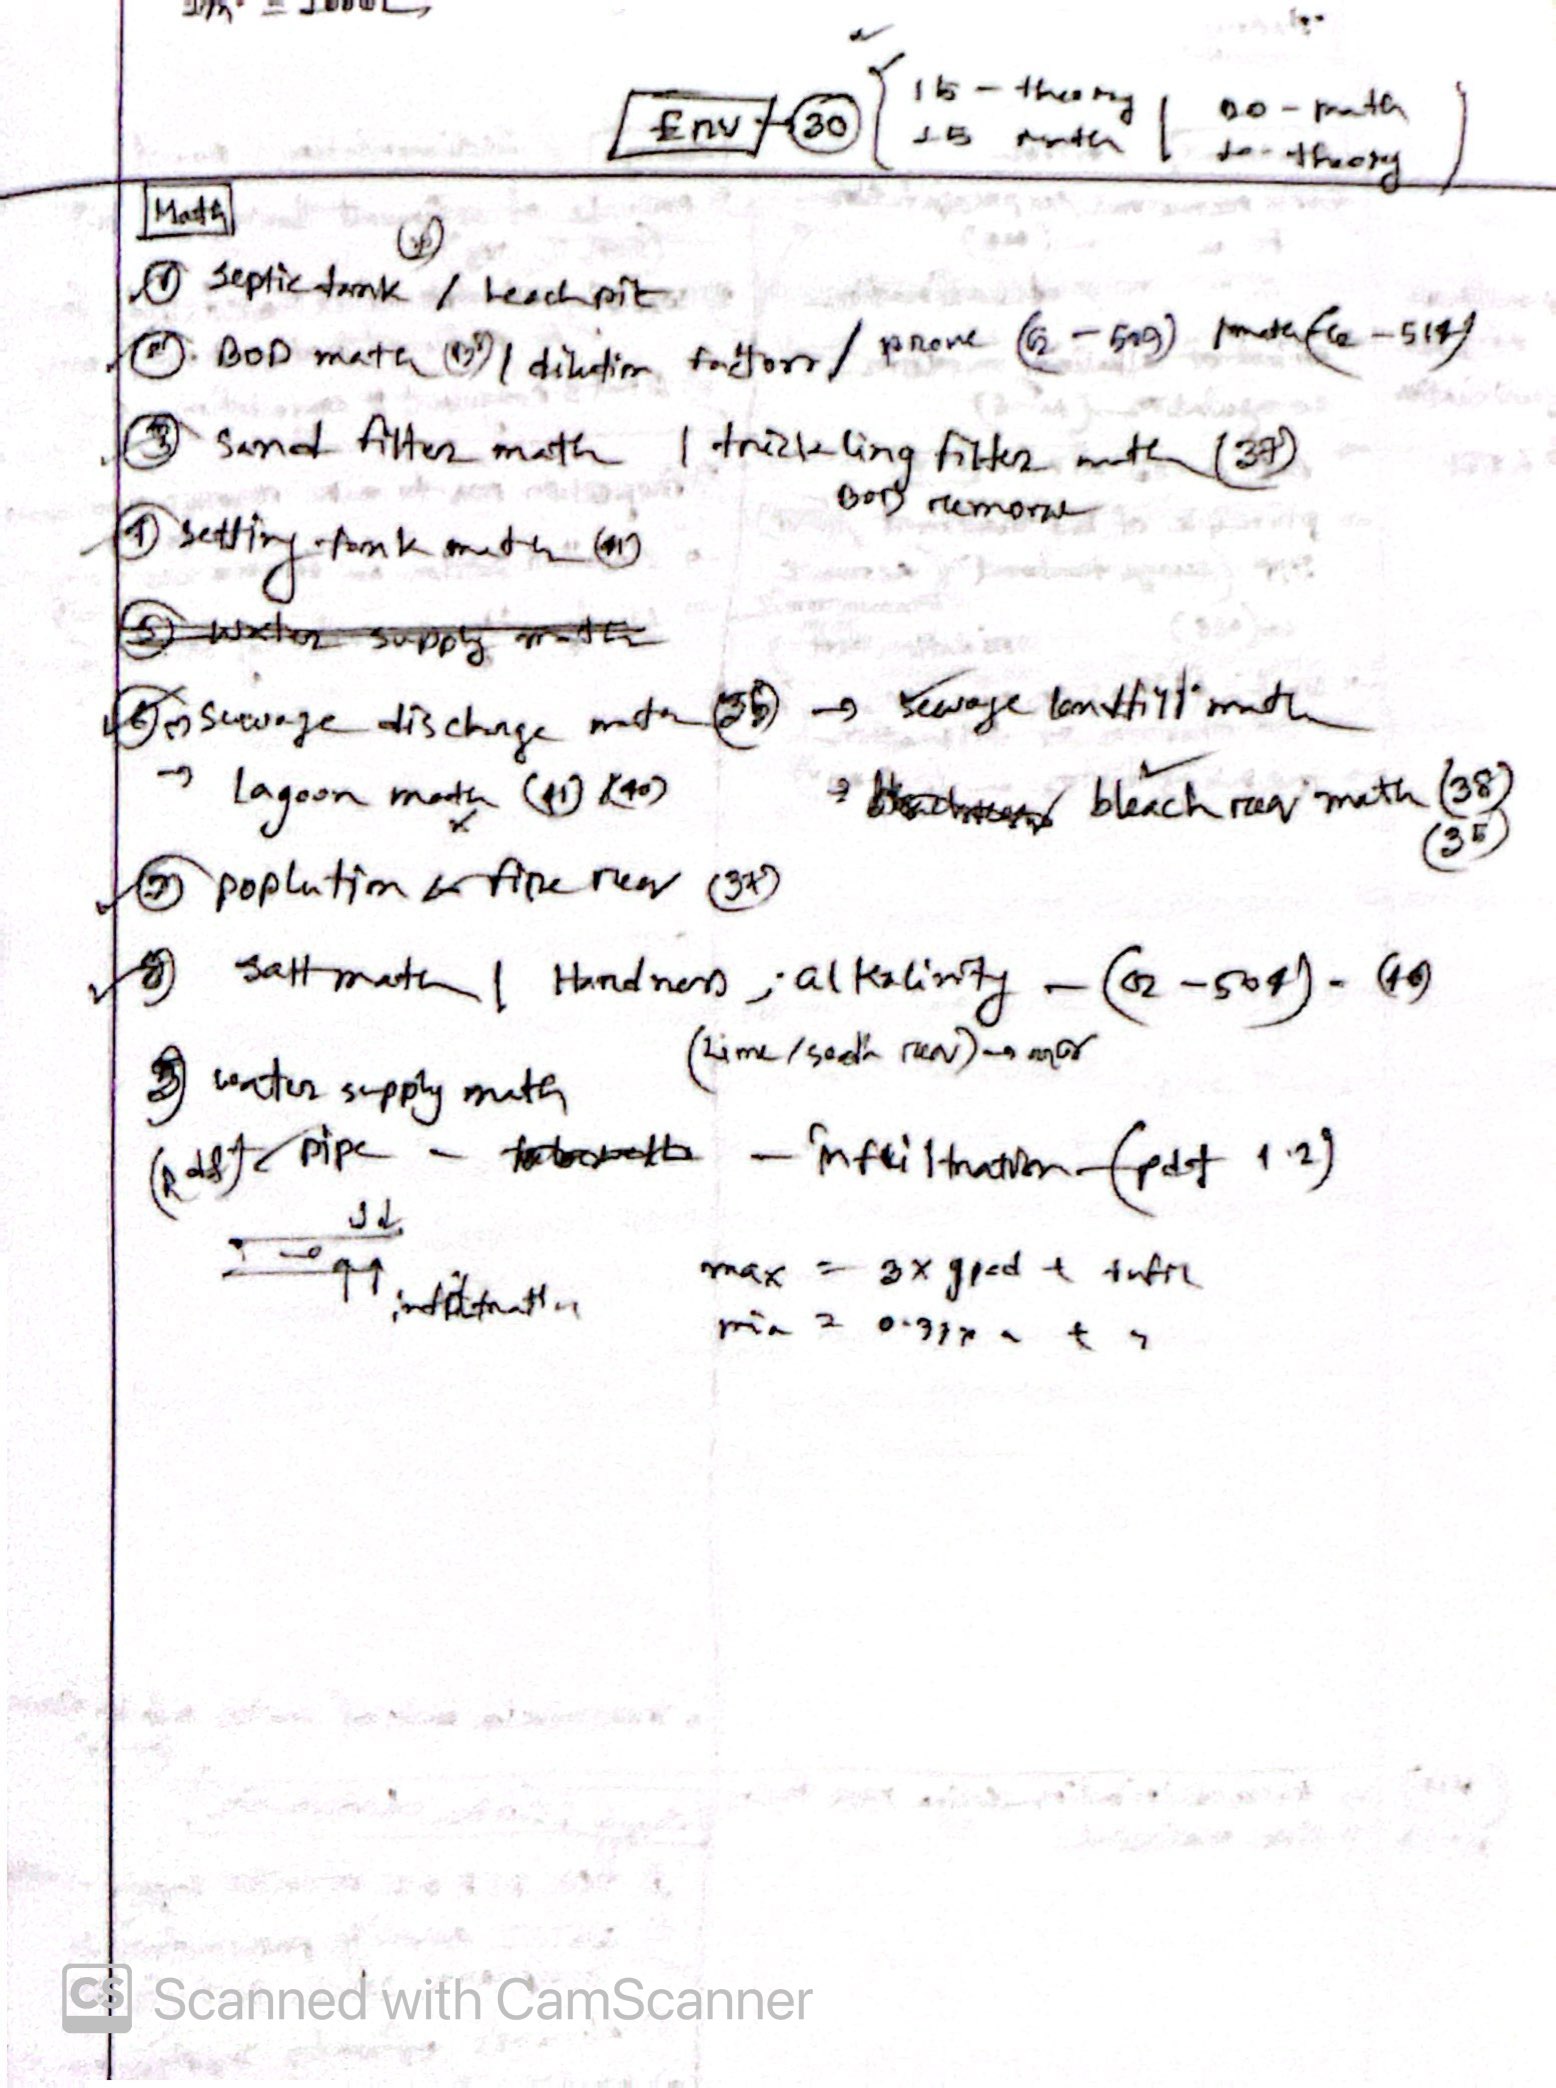 Env - 30 { 15 - theory | 20 - math
15 math | 10 - theory )
Math
① septic tank / leach pit
② BOD math / dilution factors / prove (G2 - 509) / math (G2 - 514)
③ sand filter math / trickling filter math (37)
BOD remove
④ settling tank math (41)
⑤ water supply math
⑥ → sewage discharge math (35) → sewage landfill math
→ lagoon math (41) (40) → bleach req math (38)
(35)
⑦ poplution & fire req (37)
⑧ salt math | Hardness ; alkalinity - (G2 - 504) - (40)
(Lime / soda req) →
9) water supply math
(pdf) pipe - - infiltration - (pdf 1.2)
infiltration
max = 3 x gpcd + infil
min = 0.33 x " + "
CS Scanned with CamScanner